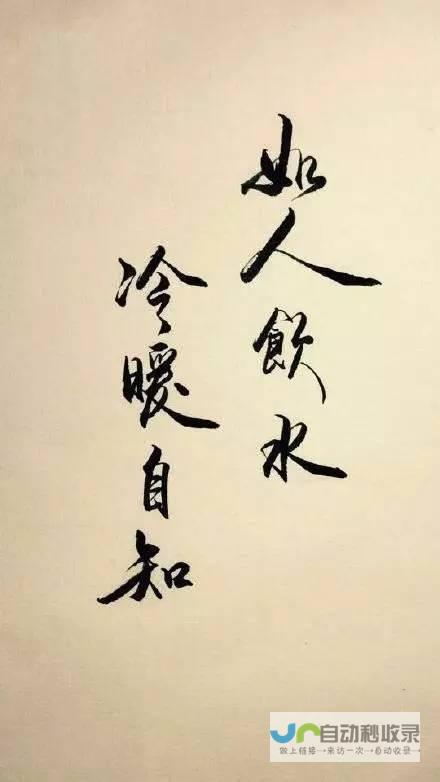 如人飲水
冷暖自知
自动秒收录
做上链接→来访一次→自动收录